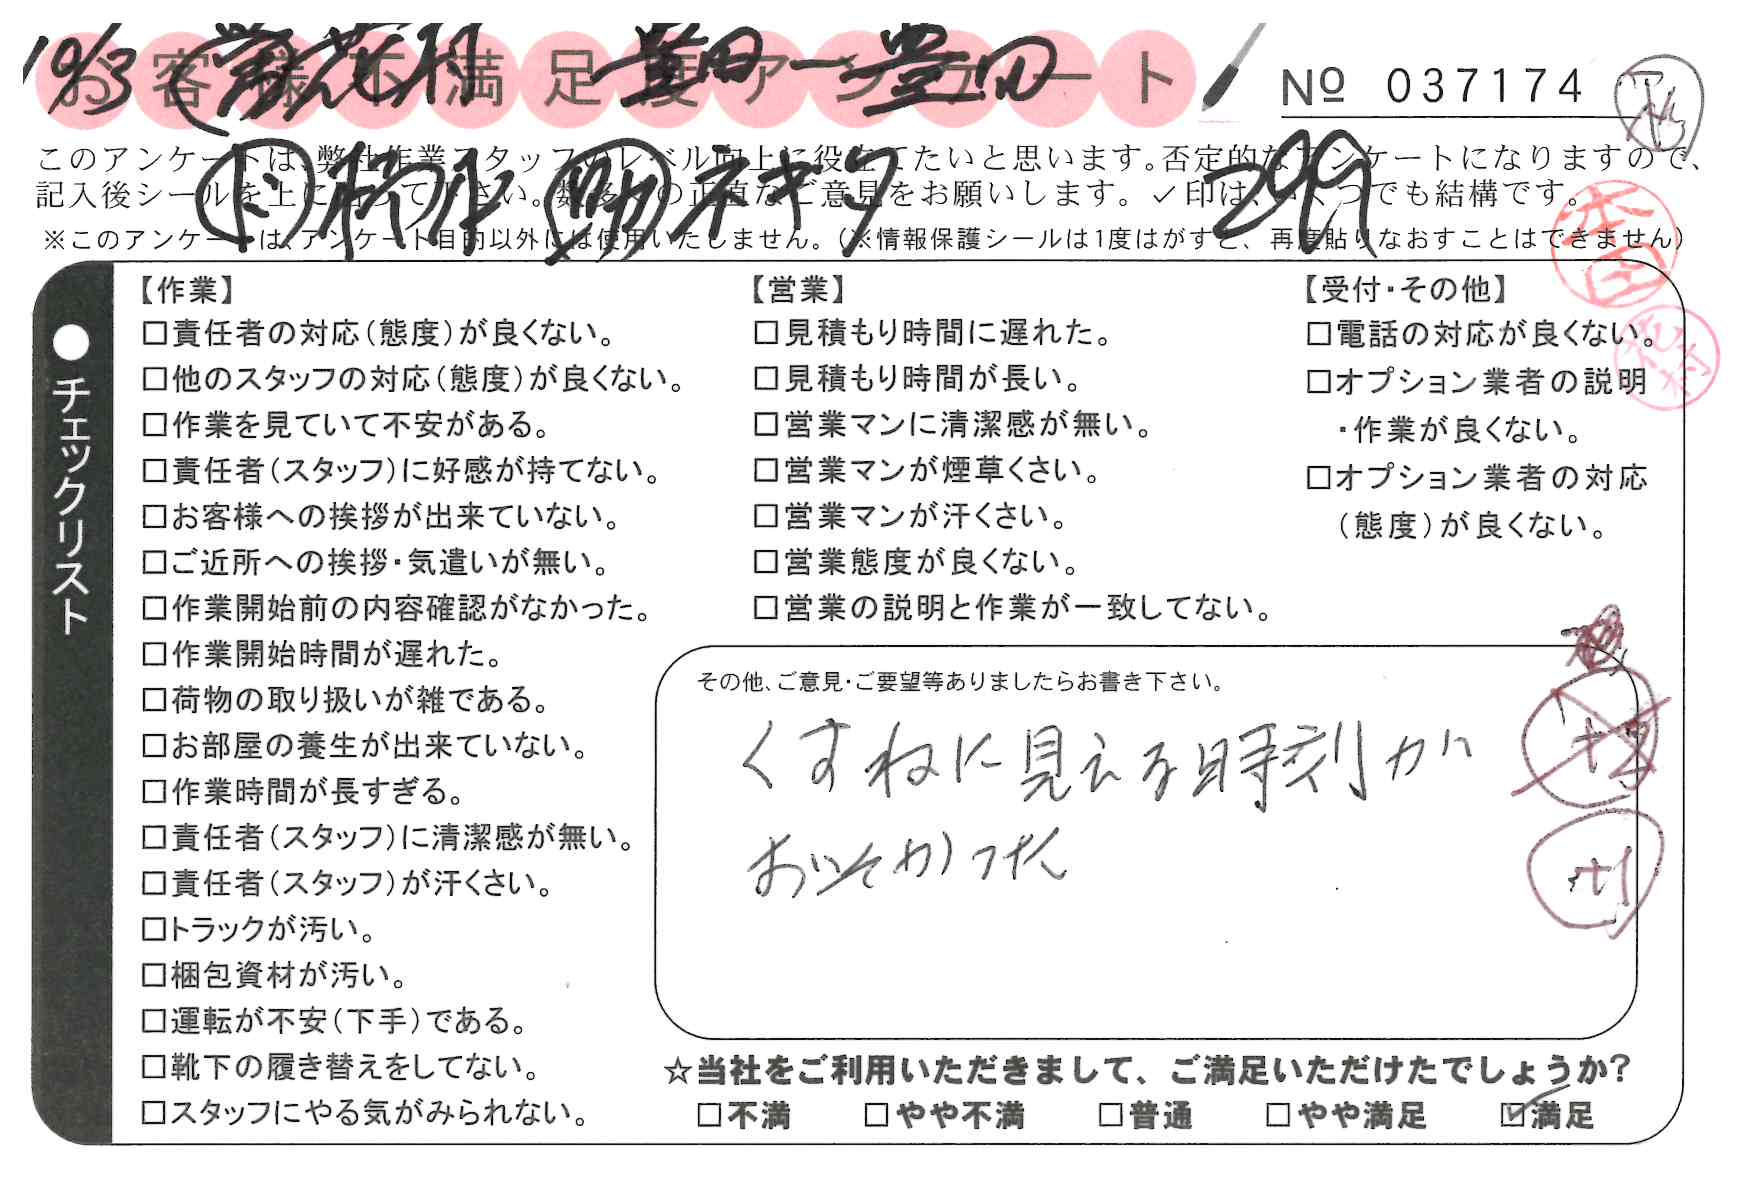 10/3
お客様不満足度アンケート
豊田ー豊田
No 037174
このアンケートは、弊社作業スタッフのレベル向上に役立てたいと思います。否定的なアンケートになりますので、
記入後シールを上に貼って下さい。数多くの正直なご意見をお願いします。✓印は、いくつでも結構です。
ネギタ 299
※このアンケートは、アンケート目的以外には使用いたしません。(※情報保護シールは1度はがすと、再度貼りなおすことはできません)
本田
●チェックリスト
【作業】
□責任者の対応(態度)が良くない。
□他のスタッフの対応(態度)が良くない。
□作業を見ていて不安がある。
□責任者(スタッフ)に好感が持てない。
□お客様への挨拶が出来ていない。
□ご近所への挨拶・気遣いが無い。
□作業開始前の内容確認がなかった。
□作業開始時間が遅れた。
□荷物の取り扱いが雑である。
□お部屋の養生が出来ていない。
□作業時間が長すぎる。
□責任者(スタッフ)に清潔感が無い。
□責任者(スタッフ)が汗くさい。
□トラックが汚い。
□梱包資材が汚い。
□運転が不安(下手)である。
□靴下の履き替えをしてない。
□スタッフにやる気がみられない。
【営業】
□見積もり時間に遅れた。
□見積もり時間が長い。
□営業マンに清潔感が無い。
□営業マンが煙草くさい。
□営業マンが汗くさい。
□営業態度が良くない。
□営業の説明と作業が一致してない。
【受付・その他】
□電話の対応が良くない。
□オプション業者の説明
・作業が良くない。
□オプション業者の対応
(態度)が良くない。
その他、ご意見・ご要望等ありましたらお書き下さい。
くすねに見える時刻が
おいそかった
☆当社をご利用いただきまして、ご満足いただけたでしょうか?
□不満 □やや不満 □普通 □やや満足 ☑満足